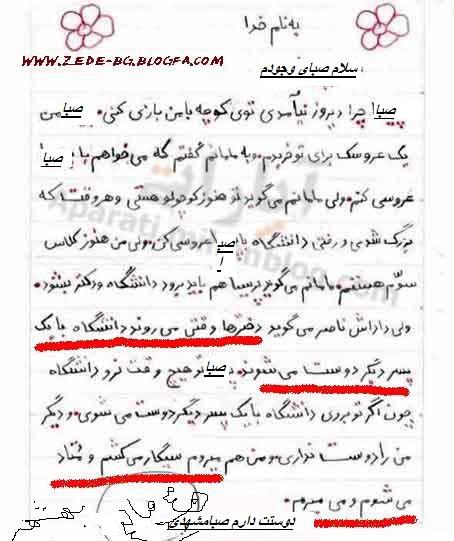 به نام خدا
WWW.ZEDE-BG.BLOGFA.COM
سلام صبای وجودم
صبا چرا دیروز نیآمدی توی کوچه با من بازی کنی. صبا من
یک عروسک برای تو خریدم. و به مامانم گفتم که می خواهم با صبا
عروسی کنم. ولی مامانم می گوید تو هنوز کوچولو هستی و هر وقت که
بزرگ شدی و رفتی دانشگاه با صبا عروسی کن. ولی من هنوز کلاس
سوّم هستم. مامانم می گوید پریسا هم باید برود دانشگاه و دکتر بشود.
ولی داداش ناصر می گوید دخترها وقتی می روند دانشگاه با یک
پسر دیگر دوست می شوند. صبا تو هیچ وقت نرو دانشگاه
چون اگر تو بروی دانشگاه با یک پسر دیگر دوست می شوی. و دیگر
من را دوست نداری. و من هم میروم سیگار می کشم و مُتاد
می شوم و می میرم.
دوستت دارم صبامشهدی